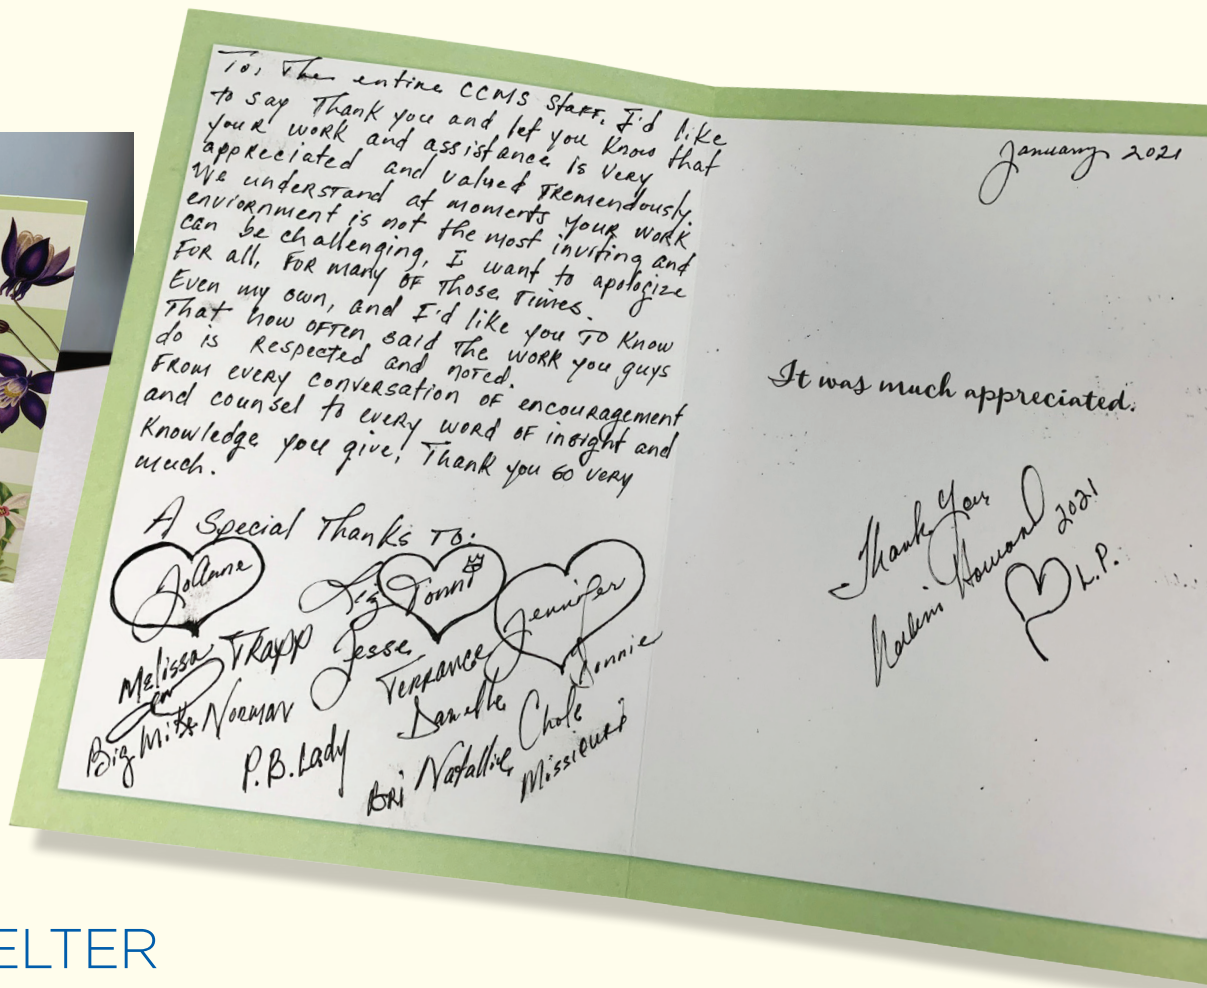 To, The entire CCMS Staff, I'd like
to say Thank you and let you know that
your work and assistance is very
appreciated and valued tremendously.
We understand at moments your work
enviornment is not the most inviting and
can be challenging, I want to apologize
For all, For many of Those Times.
Even my own, and I'd like you to know
That how often said The work you guys
do is respected and noted.
From every conversation of encouragement
and counsel to every word of insight and
knowledge you give! Thank you so very
much.
A Special Thanks To:
JoAnne Liz Tonni Jennifer
Melissa Trapp Jesse Terrance Jonnie
Big Mike Norman Danielle Chole
P.B. Lady Bri Natallie Missieur?
January 2021
It was much appreciated.
Thank You
Howard 2021
L.P.
ELTER